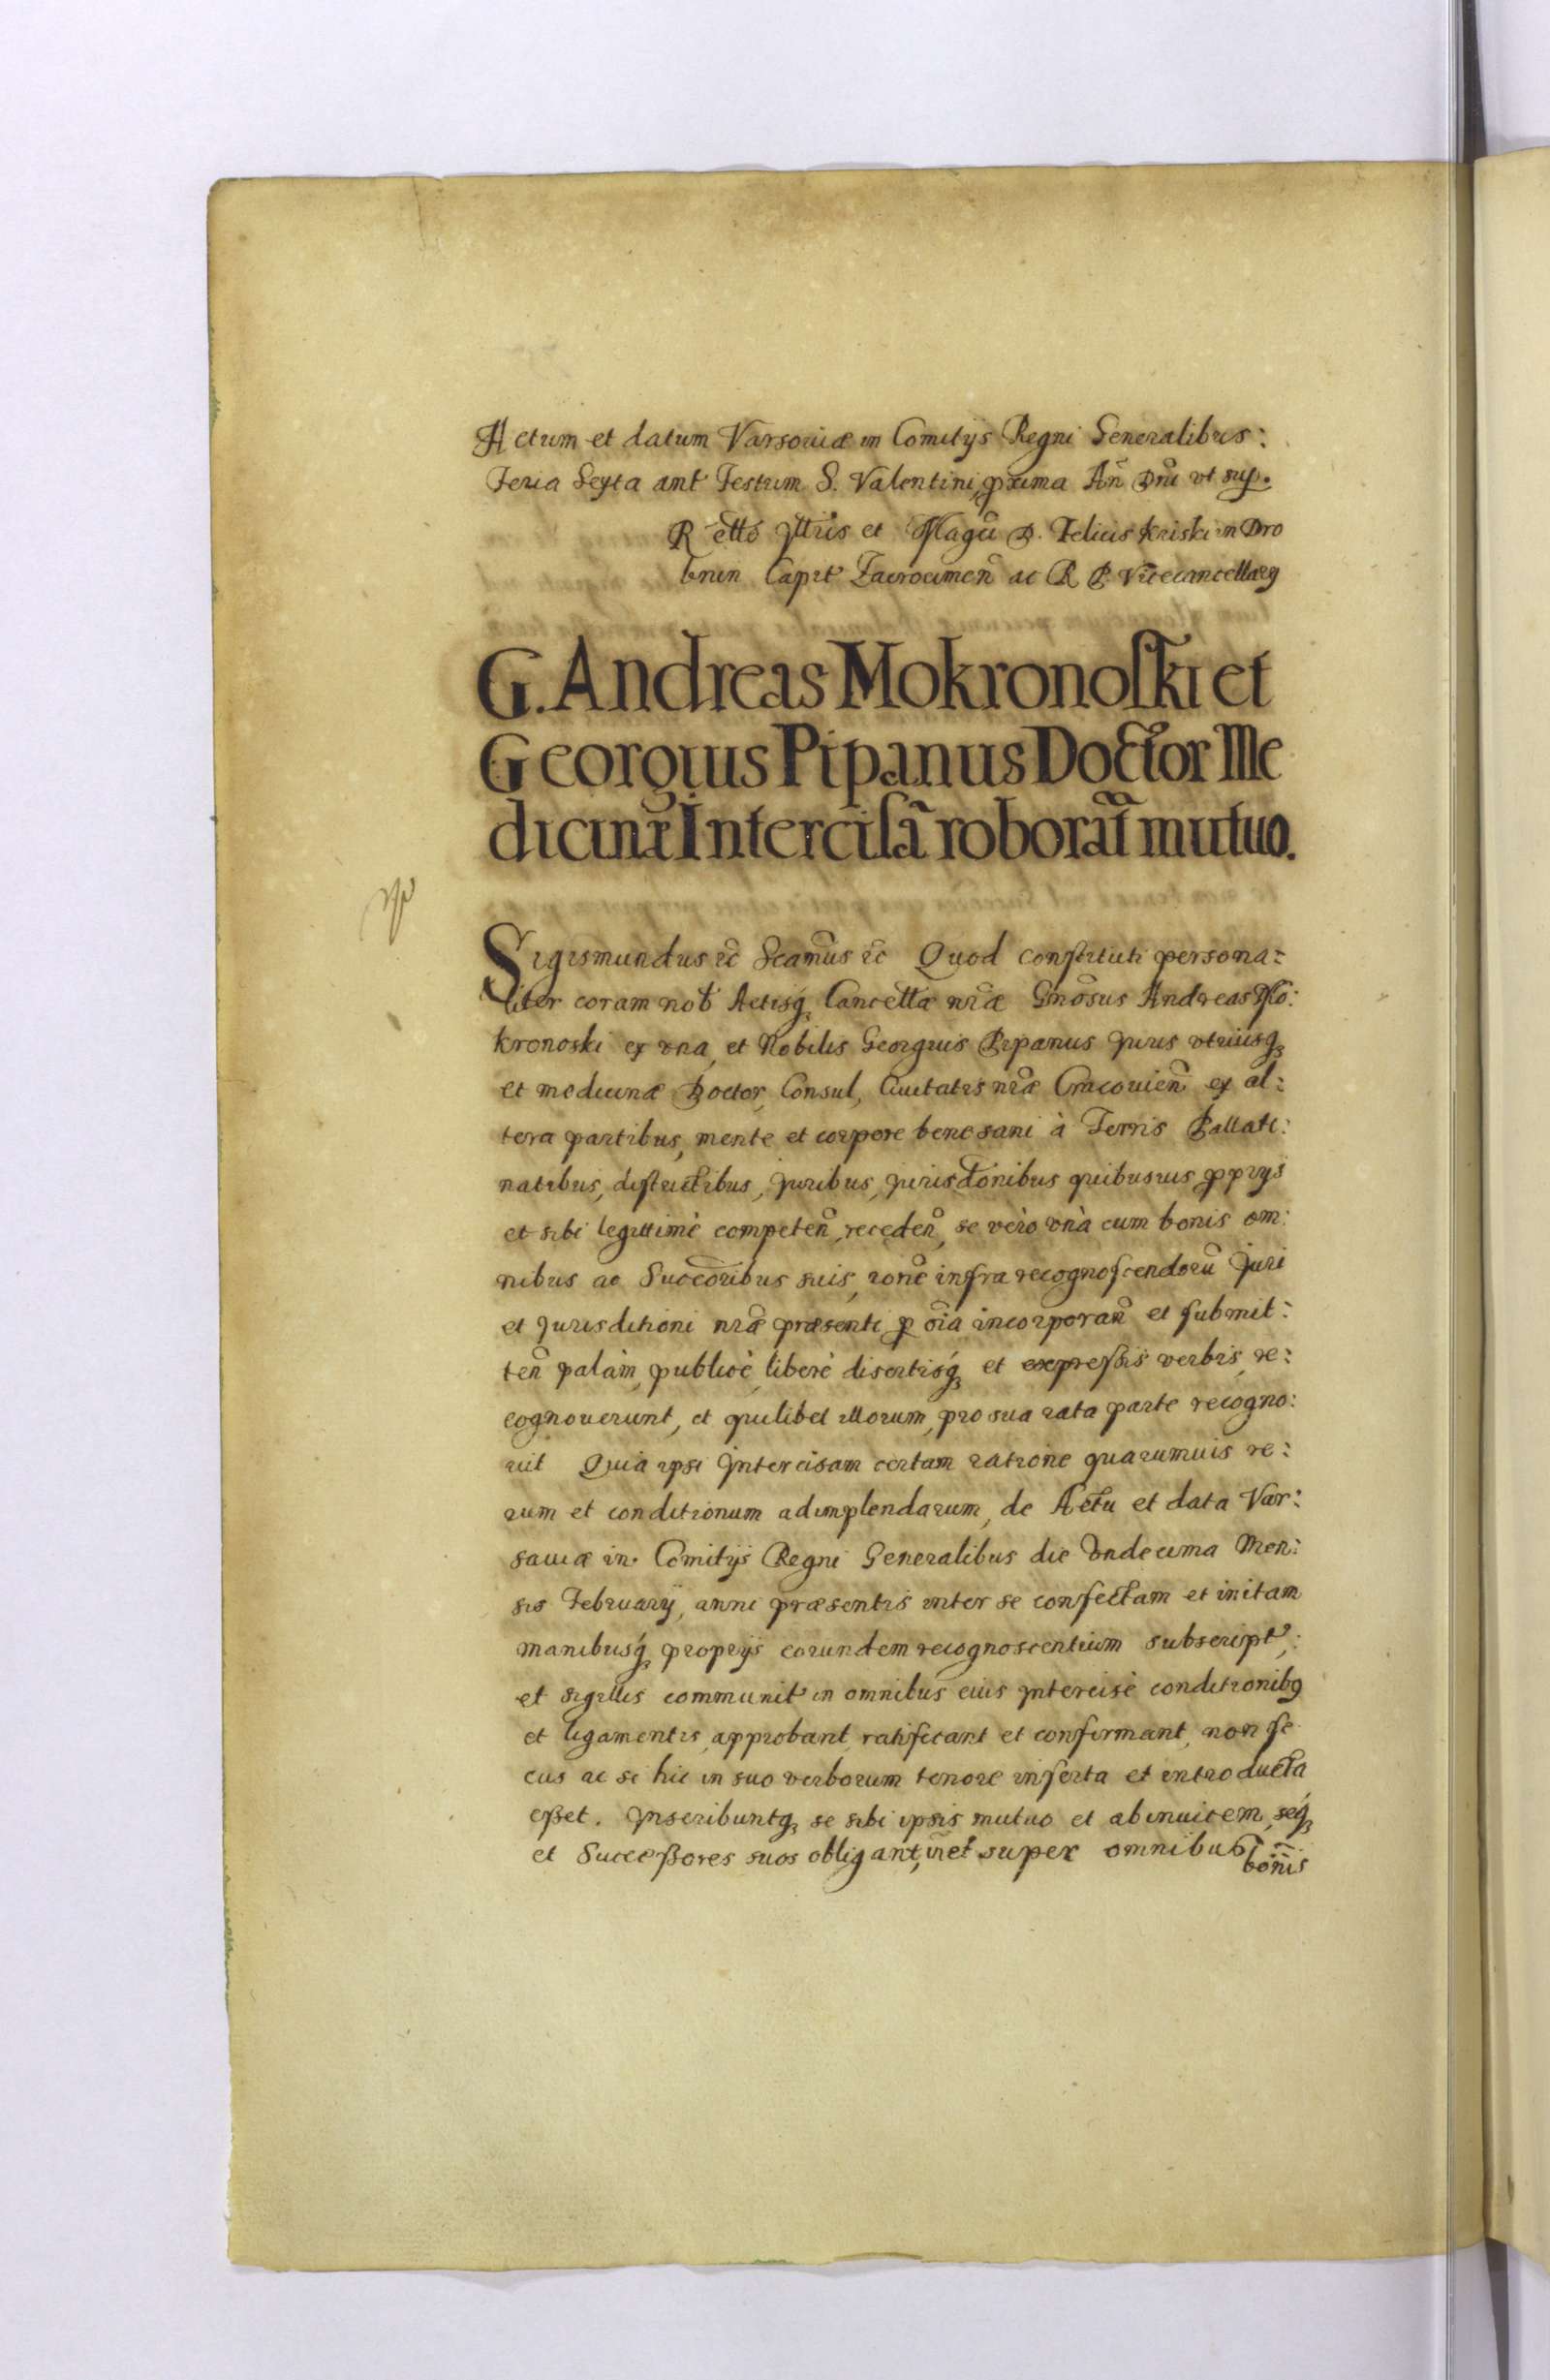 Actum et datum Varsouiæ in Comitijs Regni Generalibus:
Feria Sexta ant Festum S. Valentini proxima An Dni vt sup.
R etto Illris et Magci D. Felicis Kriski in Dro
bnin Capit Zacrocimen ac R P. Vicecancellary
G. Andreas Mokronoſki et
Georgius Pipanus Doctor Me
dicinæ Interciſã roborãt mutuo.
Sigismundus etc̃ Scamus etc̃ Quod constituti persona:
liter coram nob Actisq Cancellæ nræ Gnosus Andreas Mo:
kronoski ex vna, et Nobilis Georgius Pipanus Juris vtriusq
et medicinæ Doctor, Consul, Ciuitatis nræ Cracouien ex al:
tera partibus, mente et corpore bene sani à Terris Pallati:
natibus, districtibus, Juribus, Jurisdonibus quibusuis propiys
et sibi legittimè competen, receden, se verò vnà cum bonis om:
nibus ac Succoribus suis, rone infra recognoscendoru Juri
et Jurisditioni nræ præsenti p oia incorporan et submit:
ten palàm, publicè, liberè disertisq et expreſsis verbis, re:
cognouerunt, et quilibet illorum, pro sua rata parte recogno:
uit Quia ipsi Intercisam certam ratione quarumuis re:
rum et conditionum adimplendarum, de Actu et data Var:
sauiæ in Comitijs Regni Generalibus die Vndecima Men:
sis February, anni præsentis inter se confectam et initam
manibusq proprijs eorundem recognoscentium subscript,
et sigillis communit in omnibus eius Intercisè conditionibq
et ligamentis, approbant, ratificant et confirmant, non se
cus ac si hic in suo verborum tenore inserta et introducta
eßet. Inscribuntq se sibi ipsis mutuo et abinuicem, seq
et Succeßores suos obligant, inet super omnibus
bonis